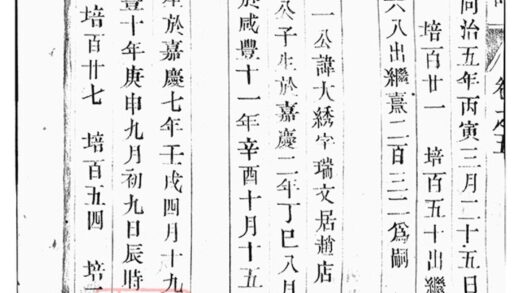 卷之五
同治五年丙寅三月二十五日
培百廿一 培百五十出繼
六八出繼熹二百三二為嗣
一公諱大綉字瑞文居趙店
公子生於嘉慶二年丁巳八月
於咸豐十一年辛酉十月十五
於嘉慶七年壬戌四月十九
豐十年庚申九月初九日辰時
培百廿七 培百五四 培